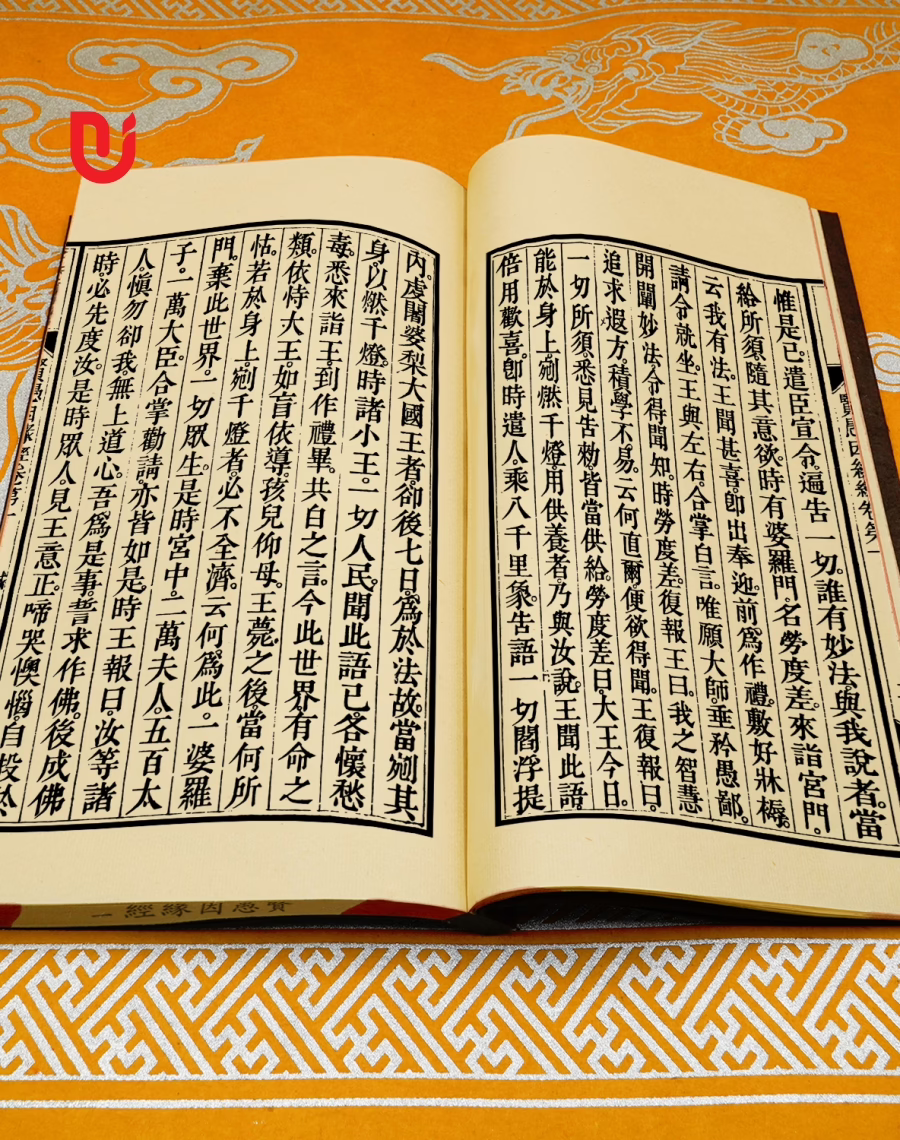 惟是已。遣臣宣令。遍告一切。誰有妙法。與我說者。當
給所須。隨其意欲。時有婆羅門。名勞度差。來詣宮門。
云我有法。王聞甚喜。卽出奉迎。前爲作禮。敷好牀褥。
請令就坐。王與左右。合掌白言。唯願大師。垂矜愚鄙。
開闡妙法。令得聞知。時勞度差。復報王曰。我之智慧
追求遐方。積學不易。云何直爾。便欲得聞。王復報曰。
一切所須。悉見告勑。皆當供給。勞度差曰。大王今日。
能於身上。剜燃千燈。用供養者。乃與汝說。王聞此語
倍用歡喜。卽時遣人。乘八千里象。告語一切閻浮提
內。虔闍婆梨大國王者。卻後七日。爲於法故。當剜其
身。以燃千燈。時諸小王。一切人民。聞此語已。各懷愁
毒。悉來詣王。到作禮畢。共白之言。今此世界。有命之
類。依恃大王。如盲依導。孩兒仰母。王薨之後。當何所
怙。若於身上。剜千燈者。必不全濟。云何爲此。一婆羅
門。棄此世界。一切眾生。是時宮中。二萬夫人。五百太
子。一萬大臣。合掌勸請。亦皆如是。時王報曰。汝等諸
人。愼勿卻我無上道心。吾爲是事。誓求作佛。後成佛
時。必先度汝。是時眾人。見王意正。啼哭懊惱。自投於
賢愚因緣經一